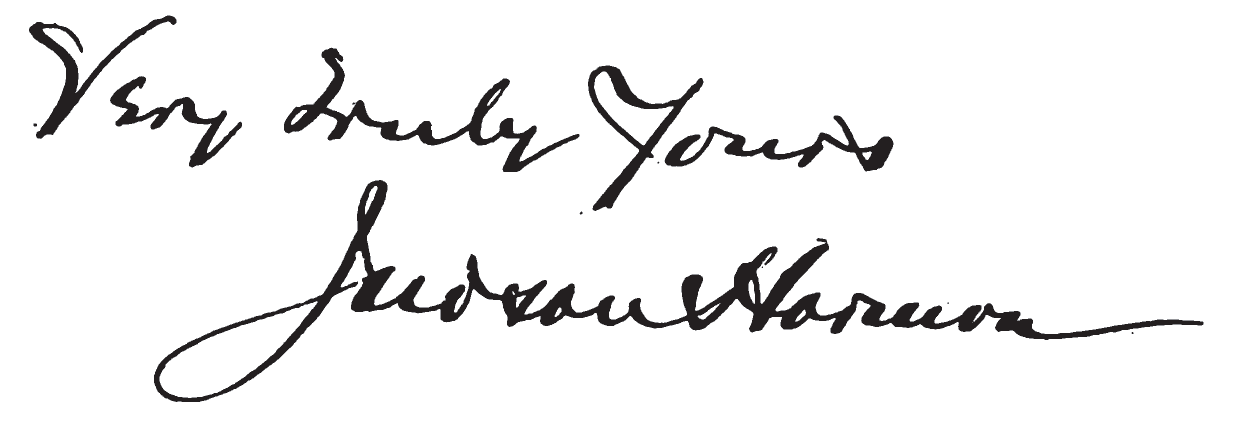 Very truly Yours
Judson Harmon